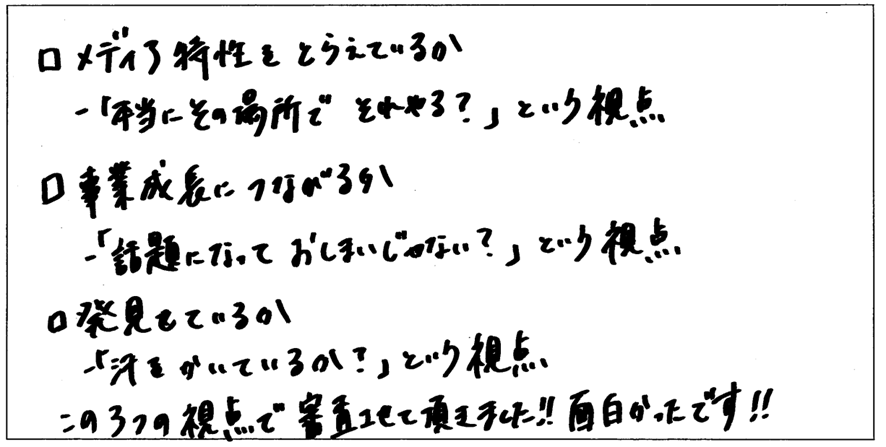 □ メディア特性をとらえているか
-「本当にその場所で それやる？」という視点
□ 事業成長につながるか
-「話題になって おしまいじゃない？」という視点
□ 発見しているか
-「汗をかいているか？」という視点
この3つの視点で 審査させて頂きました!! 面白かったです!!